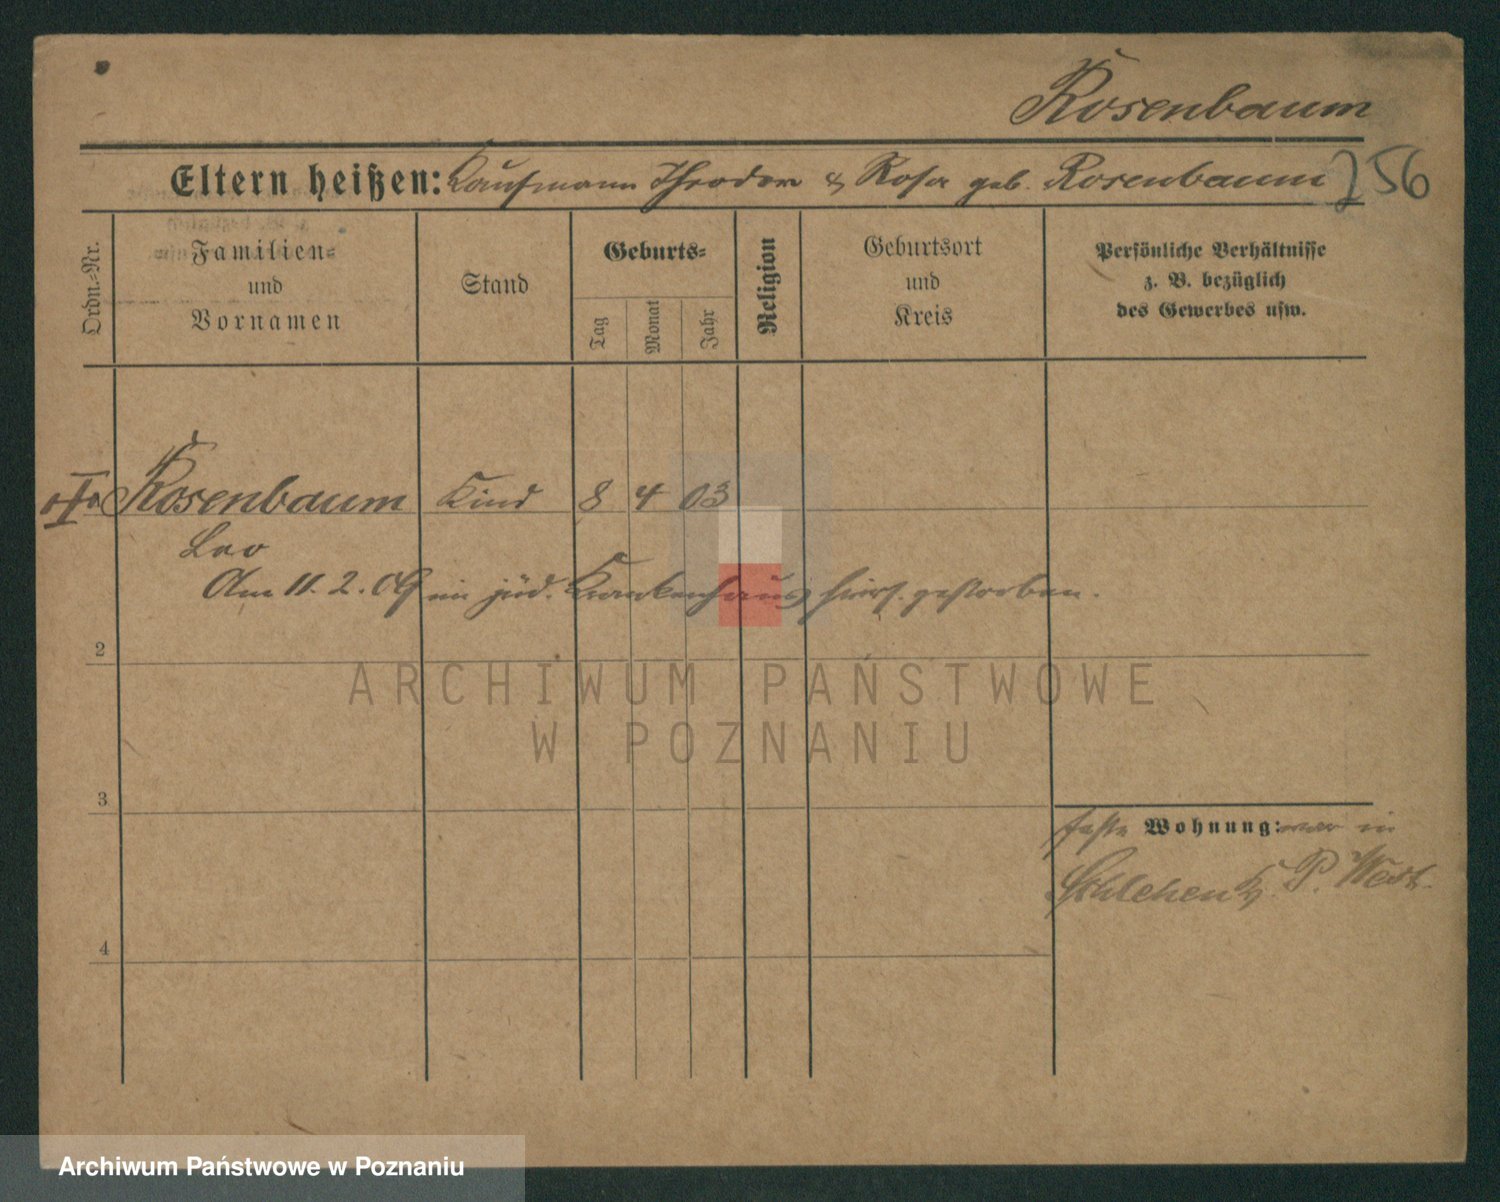 Rosenbaum
Eltern heißen: Kaufmann Theodor & Rosa geb. Rosenbaum
256
Ordn.-Nr.
Familien- und Vornamen
Stand
Geburts-
Tag
Monat
Jahr
Religion
Geburtsort und Kreis
Persönliche Verhältnisse z. B. bezüglich des Gewerbes usw.
Rosenbaum Kind 8 4 03
Leo
Am 11. 2. 09 im jüd. Krankenhaus hiers. gestorben.
2
ARCHIWUM PAŃSTWOWE
W POZNANIU
3
feste Wohnung: war in
P. West.
4
Archiwum Państwowe w Poznaniu